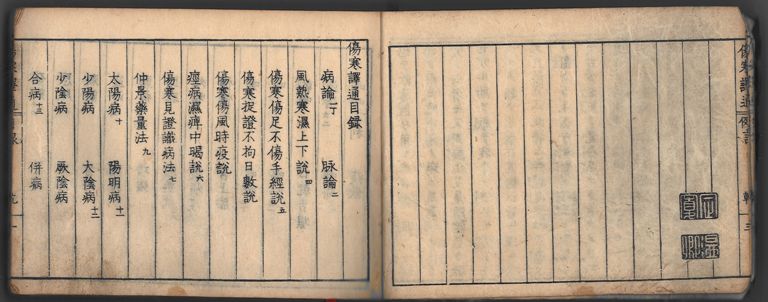 傷寒譯通
三
傷寒譯通目録
病論一丁　脉論二
風熱寒濕上下説四
傷寒傷足不傷手經説五
傷寒捉證不拘日數説
傷寒傷風時疫説
痙病濕痺中暍説六
傷寒見證識病法七
仲景藥量法九
太陽病十　陽明病十一
少陽病　大陰病十二
少陰病　厥陰病
合病十三　併病